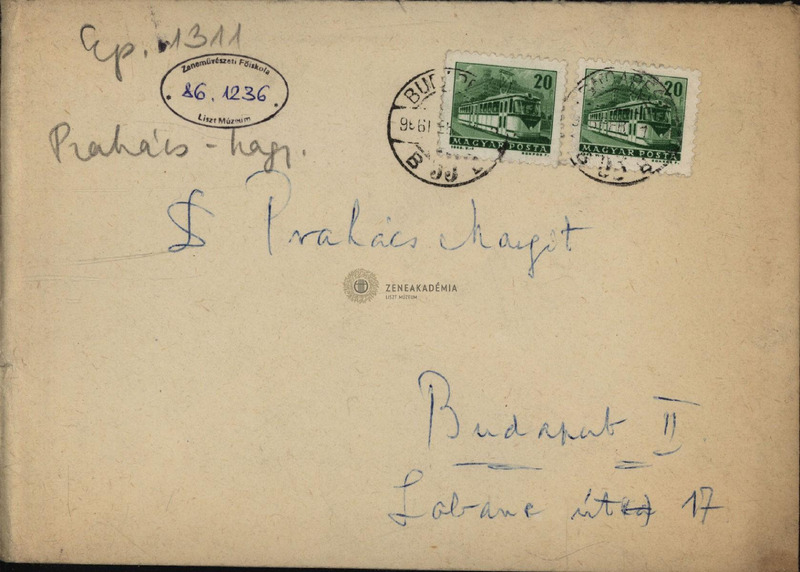 Ep. 1311
Zeneművészeti Főiskola
86. 1236
Liszt Múzeum
Prahács - hagy.
20
MAGYAR POSTA
20
MAGYAR POSTA
Prahács Margit
ZENEAKADÉMIA
LISZT MÚZEUM
Budapest II
Labanc út 17